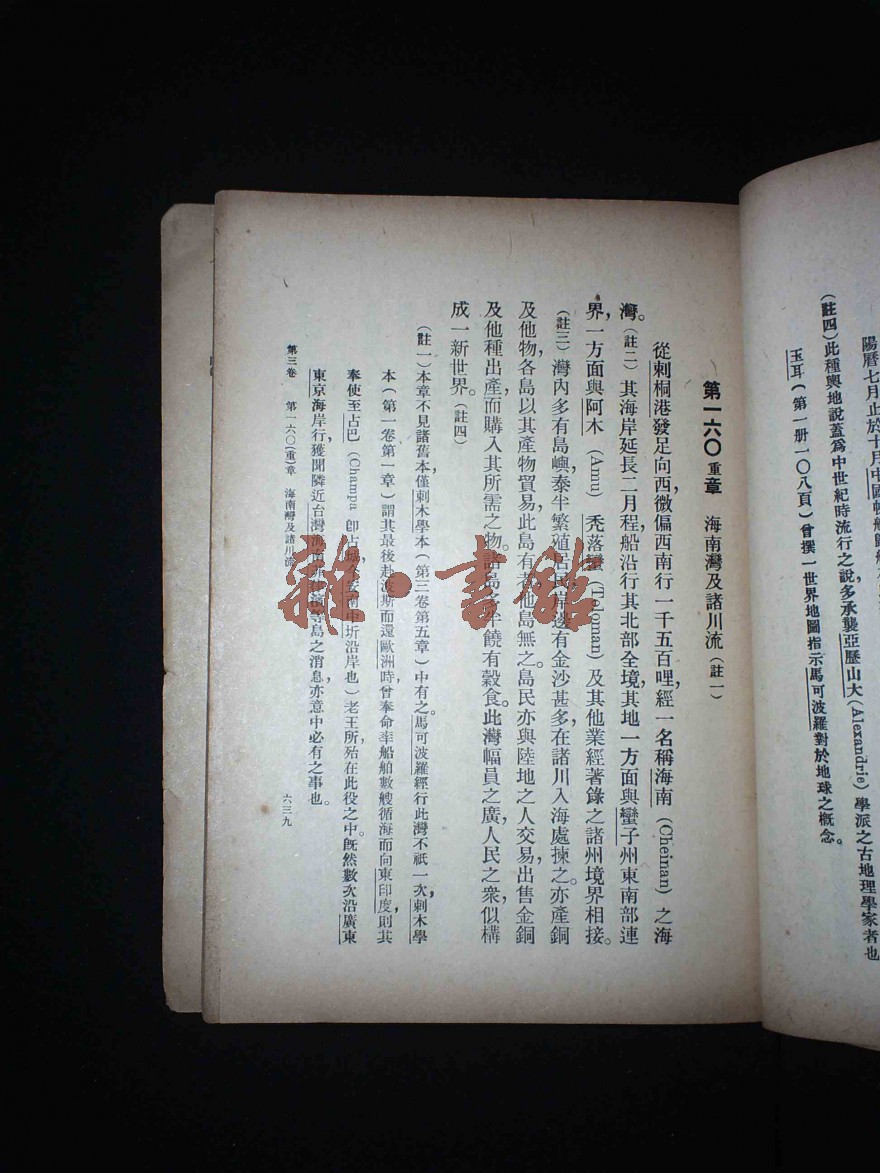 陽曆七月止於十月中國帆船
(註四)此種輿地說蓋爲中世紀時流行之說,多承襲亞歷山大(Alexandrie)學派之古地理學家者也
玉耳(第一册一〇八頁)曾撰一世界地圖指示馬可波羅對於地球之概念。
第一六〇重章 海南灣及諸川流(註一)
從刺桐港發足向西微偏西南行一千五百哩,經一名稱海南(Cheinan)之海
灣。(註二)其海岸延長二月程,船沿行其北部全境,其地一方面與蠻子州東南部連
界,一方面與阿木(Amu)禿落蠻(Toloman)及其他業經著錄之諸州境界相接。
(註三)灣內多有島嶼,泰半繁殖居民,岸邊有金沙甚多,在諸川入海處揀之。亦產銅
及他物,各島以其產物貿易,此島有者他島無之。島民亦與陸地之人交易,出售金銅
及他種出產,而購入其所需之物。諸島多半饒有穀食。此灣幅員之廣,人民之衆,似構
成一新世界。(註四)
(註一)本章不見諸舊本,僅剌木學本(第三卷第五章)中有之。馬可波羅經行此灣不祇一次,剌木學
本(第一卷第一章)謂其最後赴波斯而還歐洲時,曾奉命率船舶數艘循海而向東印度,則其
奉使至占巴(Champa 卽占城,今安南中圻沿岸也)老王所,殆在此役之中。旣然數次沿廣東
東京海岸行,獲聞隣近台灣海南等島之消息,亦意中必有之事也。
第三卷 第一六〇(重)章 海南灣及諸川流
六三九
雜·書館